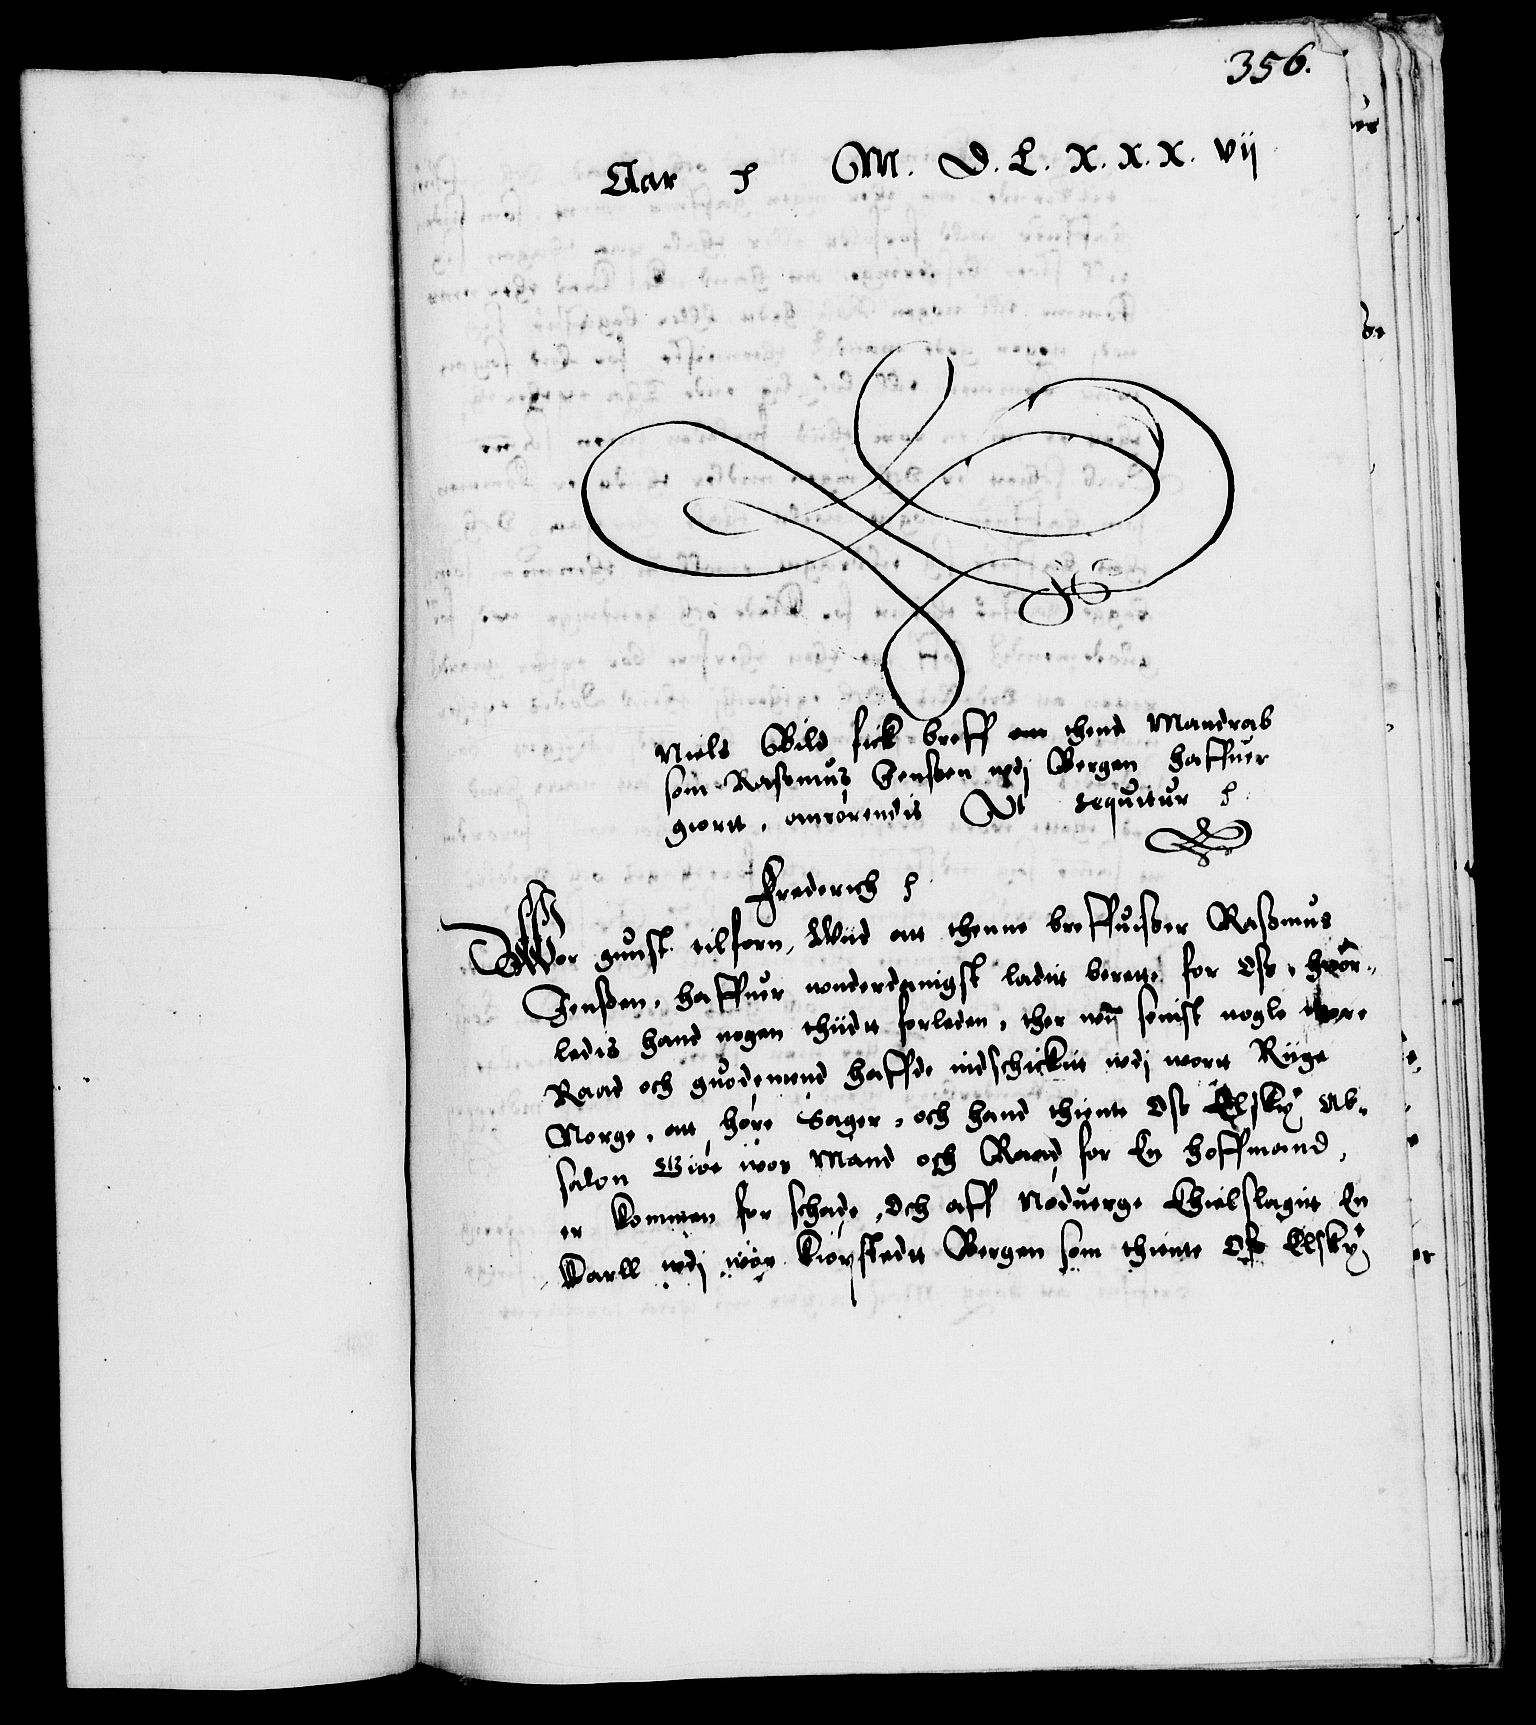 356.
Aar ꝛ M. D. L. X. X. X. vij
Niels Bild fick breff om thend Mandrab
som Rasmus Jenssen wdj Bergen haffuer
giortt, anrörendis Vt sequitur ꝛ
Frederich ꝛ
Wor gunst tilforn, Wiid att thenne breffuisser Rasmus
Jenssen, haffuer wnderdanigst ladit berette for Oss, huor-
ledis hand nogen thiidt forleden, ther wij senist nogle wore
Raad och guodemend haffde indschickit wdj wort Riige
Norge, att höre Sager, och hand thiente Oss Elskl Ab-
salon Giöe wor Mand och Raad for En hoffmand,
er kommen for schade, Och aff Nöduerge Ihielslagit En
Karll wdj wor Kiöpstedt Bergen som thiente Oss Elskl